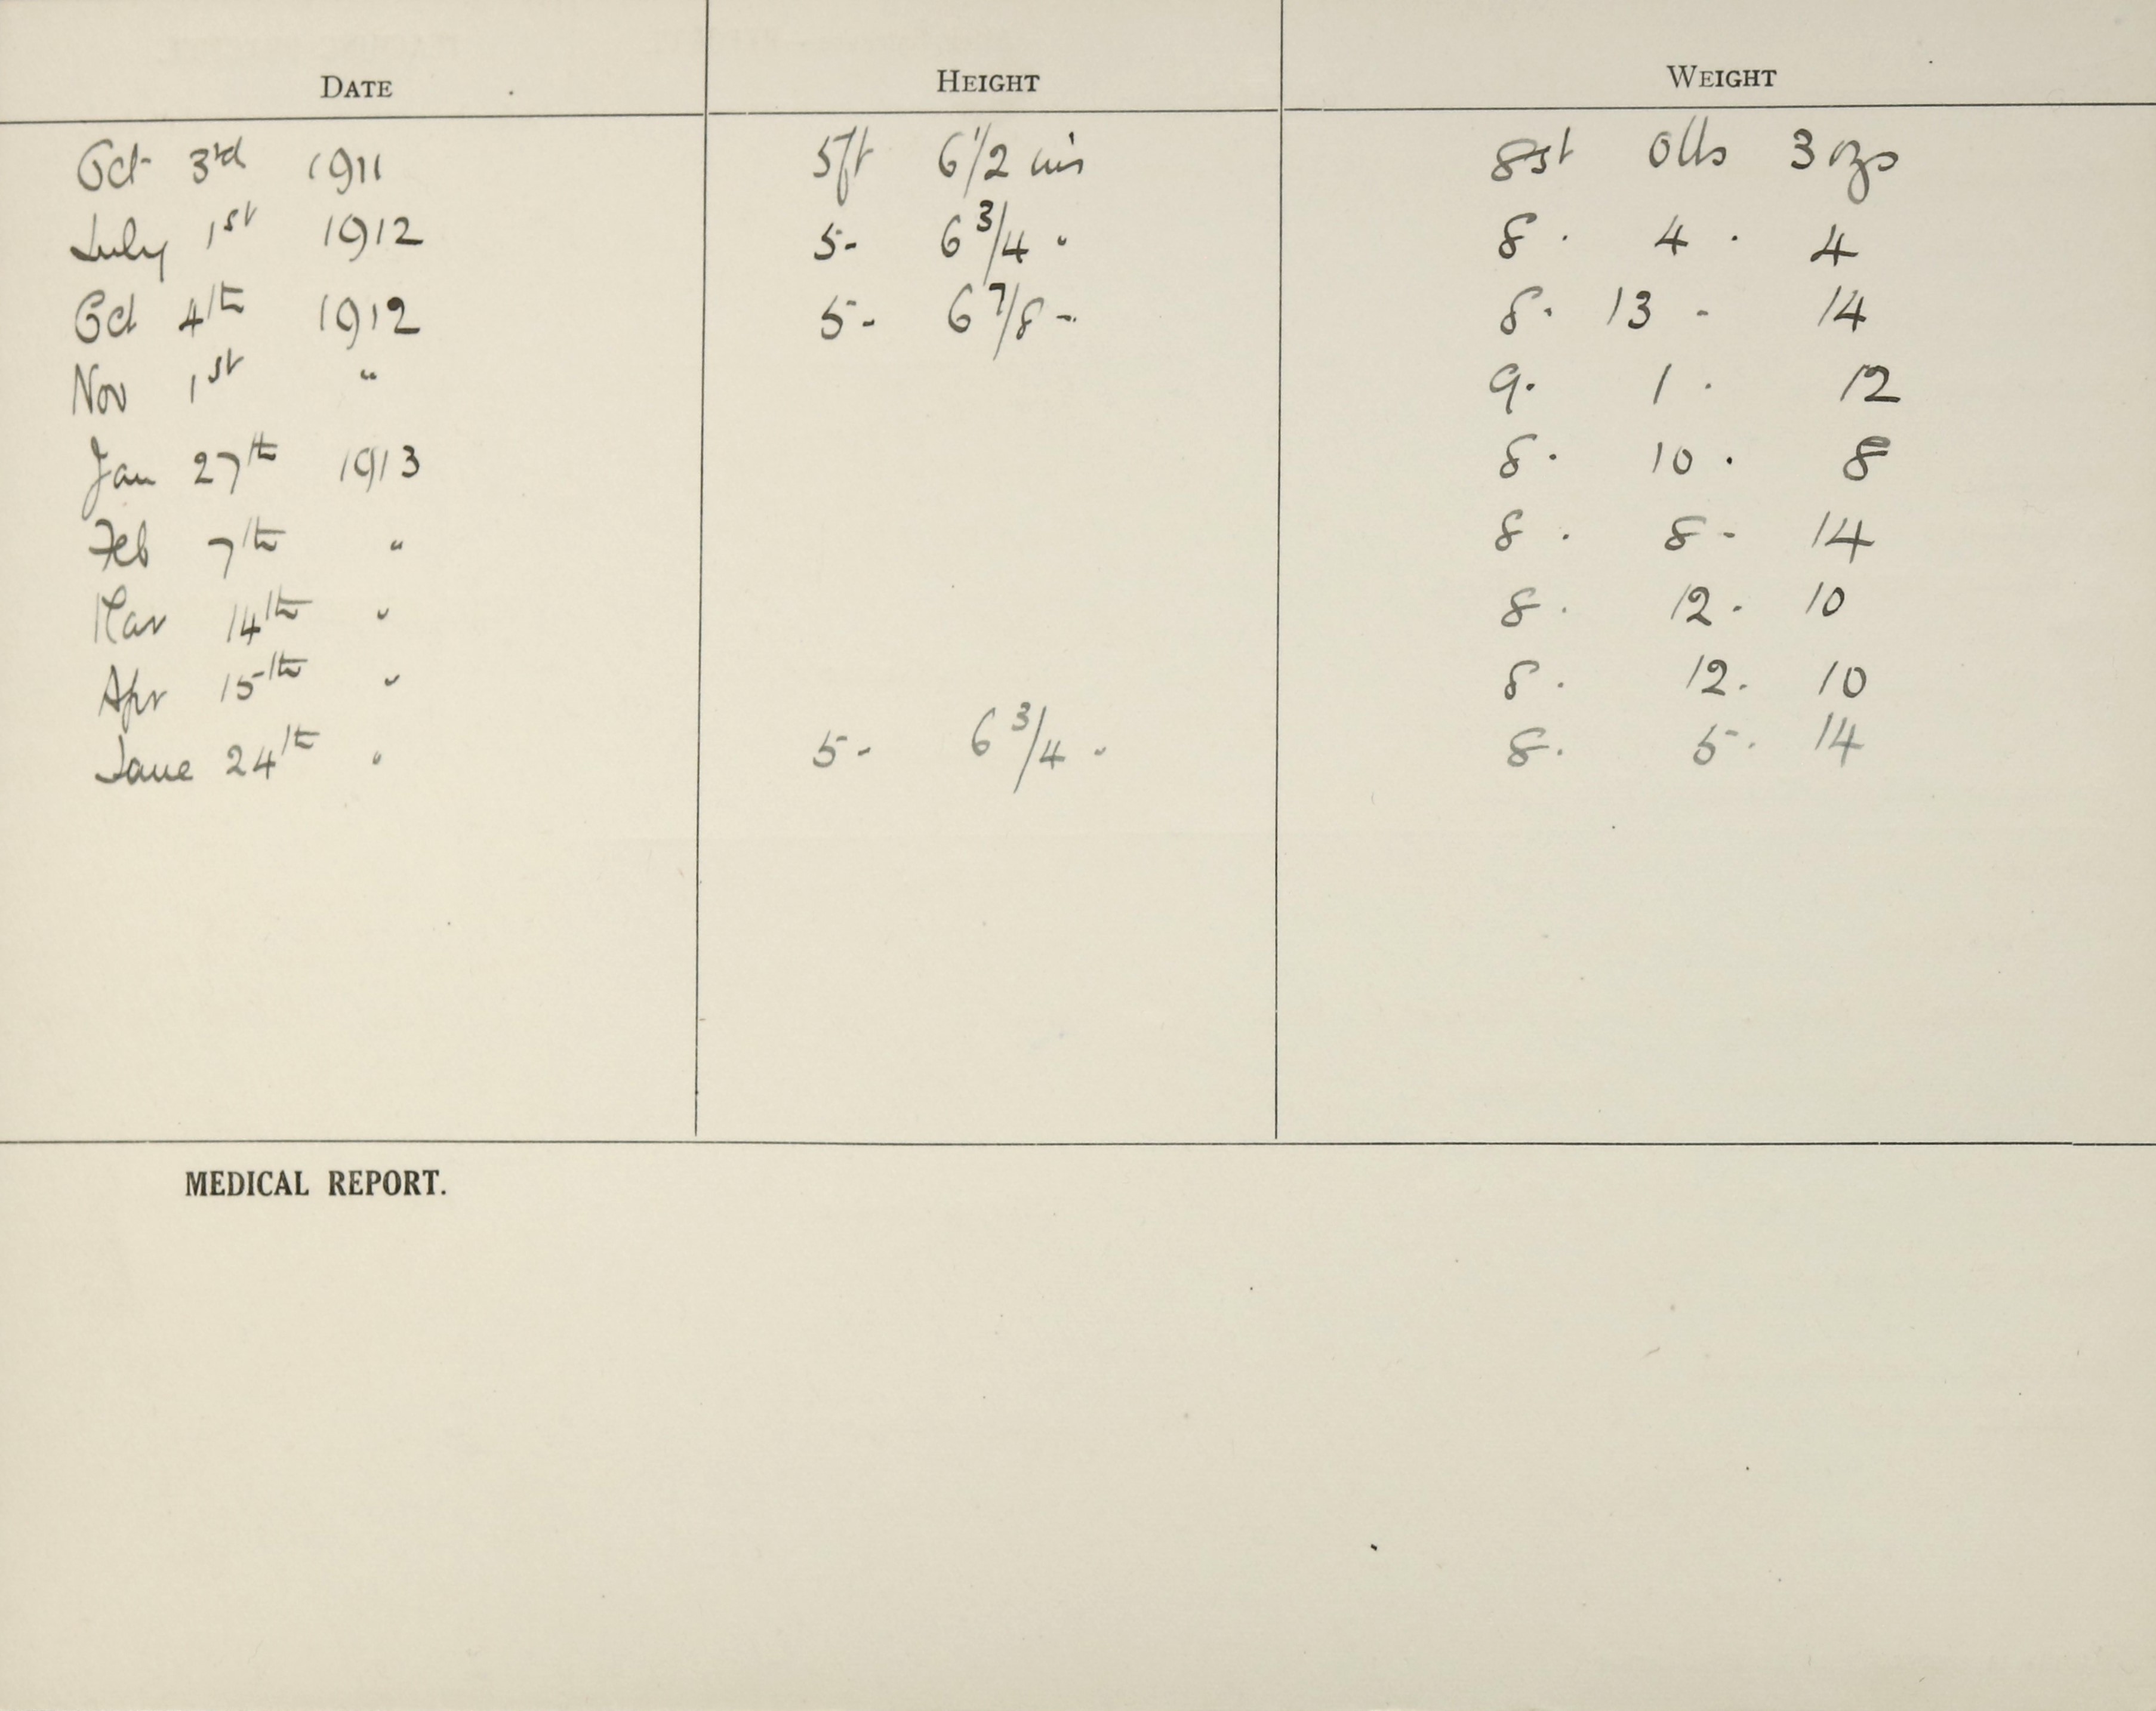 DATE HEIGHT WEIGHT
Oct 3rd 1911 5ft 6 1/2 ins 8st 0lbs 3 ozs
July 1st 1912 5 - 6 3/4 " 8 . 4 . 4
Oct 4th 1912 5 - 6 7/8 - 8 . 13 - 14
Nov 1st " 9 . 1 . 12
Jan 27th 1913 8 . 10 . 8
Feb 7th " 8 . 8 - 14
Mar 14th " 8 . 12 - 10
Apr 15th " 8 . 12 . 10
June 24th " 5 - 6 3/4 " 8 . 5 . 14
MEDICAL REPORT.